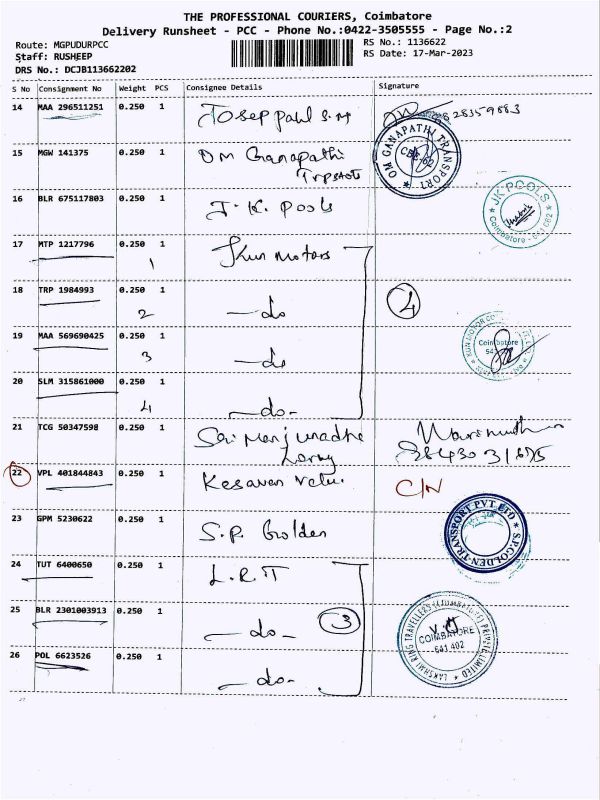 THE PROFESSIONAL COURIERS, Coimbatore
Delivery Runsheet - PCC - Phone No.:0422-3505555 - Page No.:2
Route: MGPUDURPCC
RS No.: 1136622
Staff: RUSHEEP
RS Date: 17-Mar-2023
DRS No.: DCJB113662202
S No Consignment No Weight PCS Consignee Details Signature
14 MAA 296511251 0.250 1 Josep paul S.M
OM GANAPATHI TRANSPORT
CBE-62
15 MGW 141375 0.250 1 OM Ganapathi
16 BLR 675117803 0.250 1 J. K. Pools
JK POOLS
Coimbatore - 641 062
17 MTP 1217796 0.250 1 Kun motors
1
18 TRP 1984993 0.250 1 -do
2
4
19 MAA 569690425 0.250 1 -do
3
Coimbatore
20 SLM 315861000 0.250 1 -do-
4
21 TCG 50347598 0.250 1 Sri Manjunadha
22 VPL 401844843 0.250 1 Kesavan Velu. C/N
23 GPM 5230622 0.250 1 S.P. Golden
S.P.GOLDEN TRANSPORT PVT LTD
24 TUT 6400650 0.250 1 L.R.T
25 BLR 2301003913 0.250 1 -do-
3
LAKSHMI RING TRAVELLERS (COIMBATORE) PRIVATE LIMITED
COIMBATORE
641 402
26 POL 6623526 0.250 1 -do-